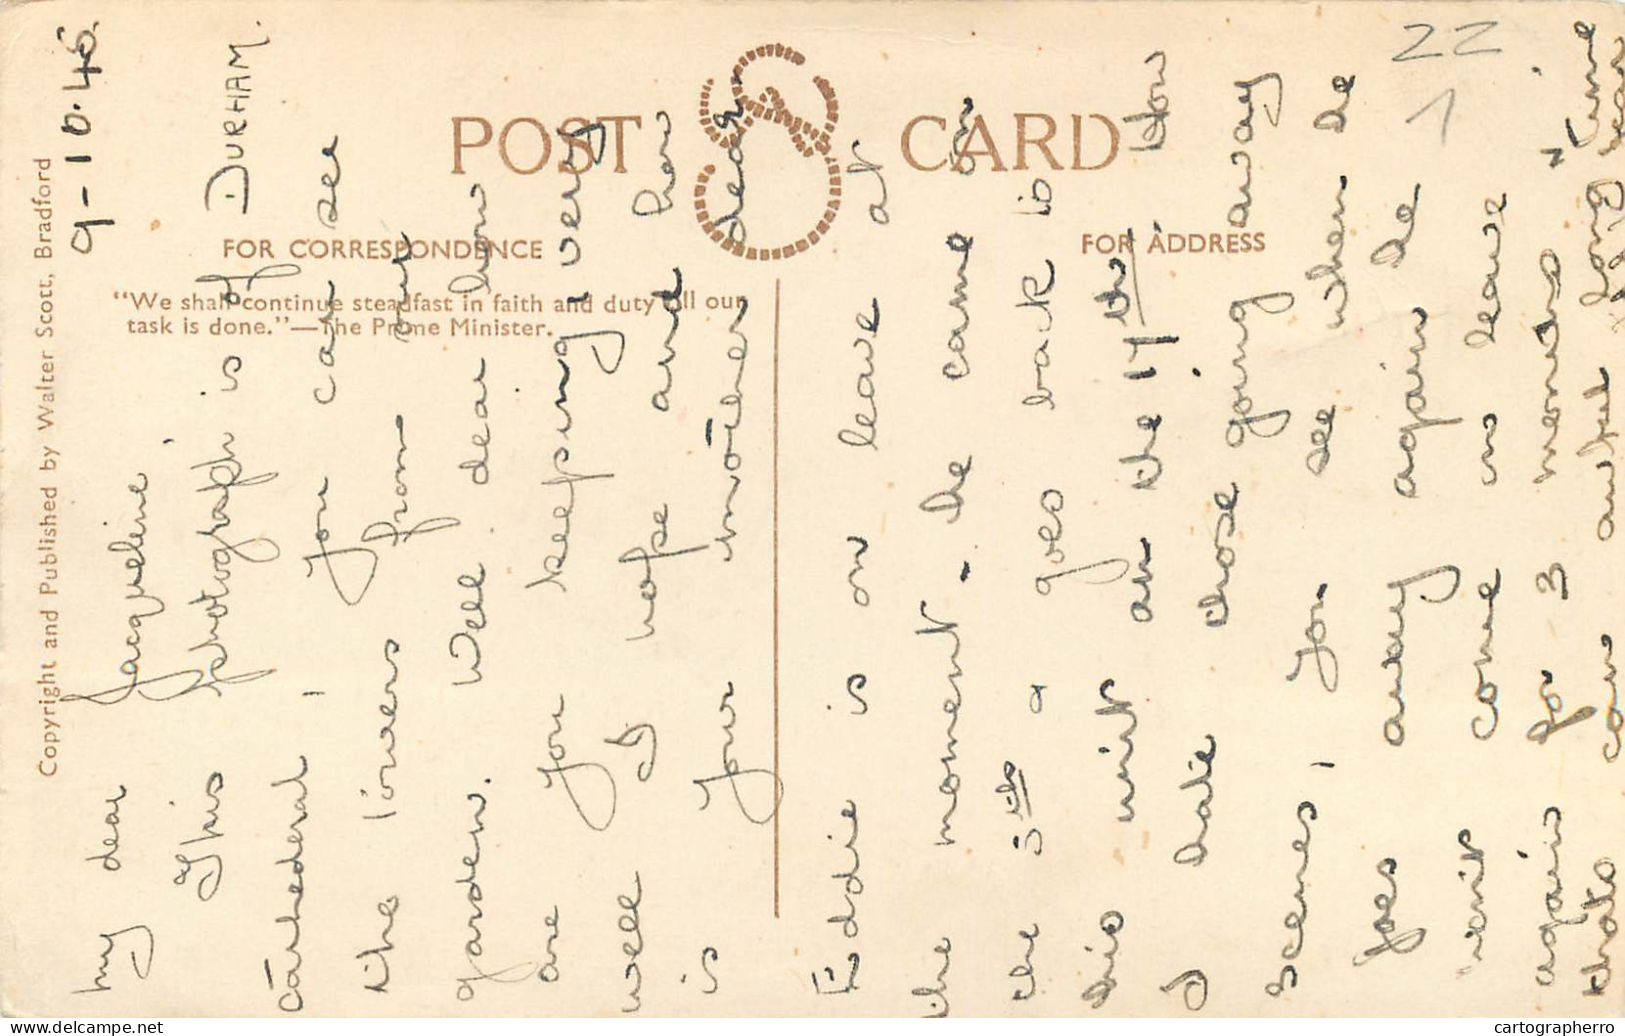 Copyright and Published by Walter Scott, Bradford
POST CARD
FOR CORRESPONDENCE
FOR ADDRESS
"We shall continue steadfast in faith and duty till our
task is done."—The Prime Minister.
22
1
9-10.45.
My dear Jacqueline,
This photograph is of DURHAM.
Cathedral, you can see
the towers from our
garden. Well dear how
are you keeping, very
well I hope and how
is your mother dear
Eddie is on leave at
the moment - he came on
the 3th & goes back is
his unit on the 17th. How
I hate those going away
scenes, you see when he
goes away again he
wont come on leave
again for 3 months "
thats can what long time
delcampe.net
cartographerro